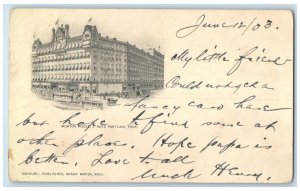 June 12/03.
My little friend
Could not get a
MORTON HOUSE, GRAND RAPIDS, MICH.
fancy card here
but hope to find some at
other place. Hope papa is
better. Love to all
Much Henry.
HANBURY, PUBLISHER, GRAND RAPIDS, MICH.